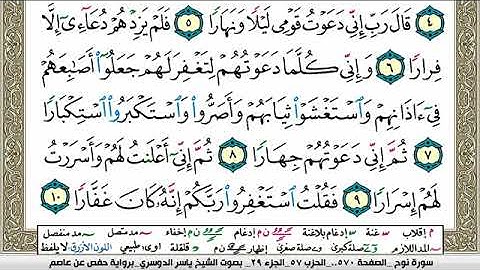 ٤ قَالَ رَبِّ إِنِّي دَعَوْتُ قَوْمِي لَيْلًا وَنَهَارًا ٥ فَلَمْ يَزِدْهُمْ دُعَآءِىٓ إِلَّا
فِرَارًا ٦ وَإِنِّي كُلَّمَا دَعَوْتُهُمْ لِتَغْفِرَ لَهُمْ جَعَلُوٓا۟ أَصَٰبِعَهُمْ
فِىٓ ءَاذَانِهِمْ وَٱسْتَغْشَوْا۟ ثِيَابَهُمْ وَأَصَرُّوا۟ وَٱسْتَكْبَرُوا۟ ٱسْتِكْبَارًا
٧ ثُمَّ إِنِّي دَعَوْتُهُمْ جِهَارًا ٨ ثُمَّ إِنِّىٓ أَعْلَنتُ لَهُمْ وَأَسْرَرْتُ
لَهُمْ إِسْرَارًا ٩ فَقُلْتُ ٱسْتَغْفِرُوا۟ رَبَّكُمْ إِنَّهُۥ كَانَ غَفَّارًا ١٠
م إقلاب غنة ن م إدغام بلاغنة ن م إدغام ن م إخفاء مد متصل مد منفصل
المد اللازم صلة كبرى صلة صغرى إظهار ن م قلقلة اوى: طبيعي اللون الأزرق: لا يلفظ
سورة نوح _الصفحة ٥٧٠_ الحزب ٥٧_ الجزء ٢٩_ بصوت الشيخ ياسر الدوسري_ برواية حفص عن عاصم